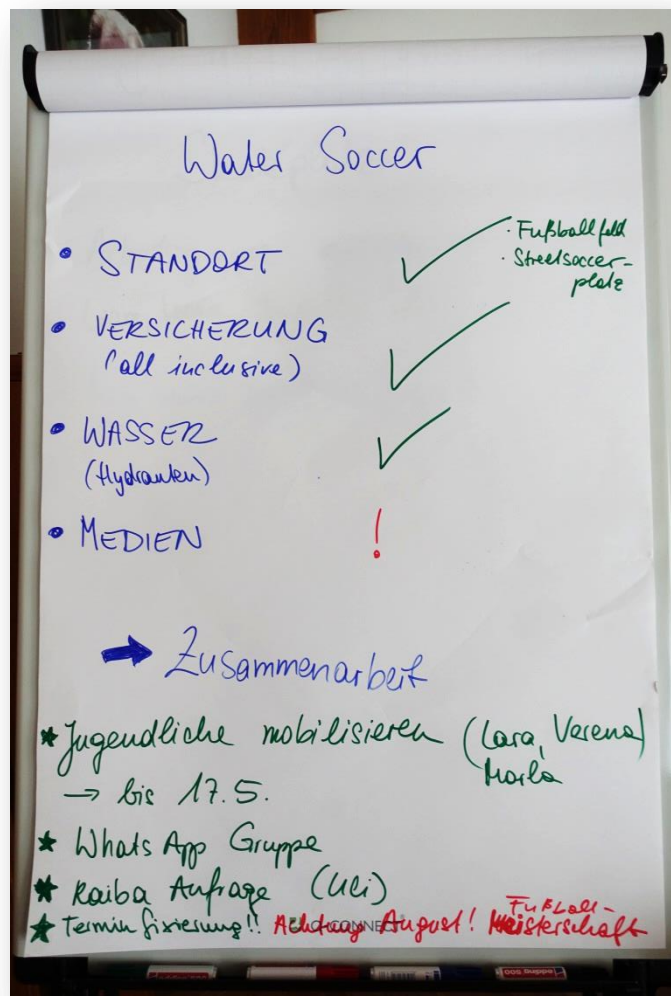 Water Soccer
• STANDORT
· Fußballfeld
· Streetsoccer-
platz
• VERSICHERUNG
(all inclusive)
• WASSER
(Hydranten)
• MEDIEN !
➡ Zusammenarbeit
* Jugendliche mobilisieren (Lara, Verena)
Marla
→ bis 17.5.
* WhatsApp Gruppe
* Raiba Anfrage (Uli)
* Terminfixierung!! Achtung August! Fußball-
Meisterschaft
edding 500